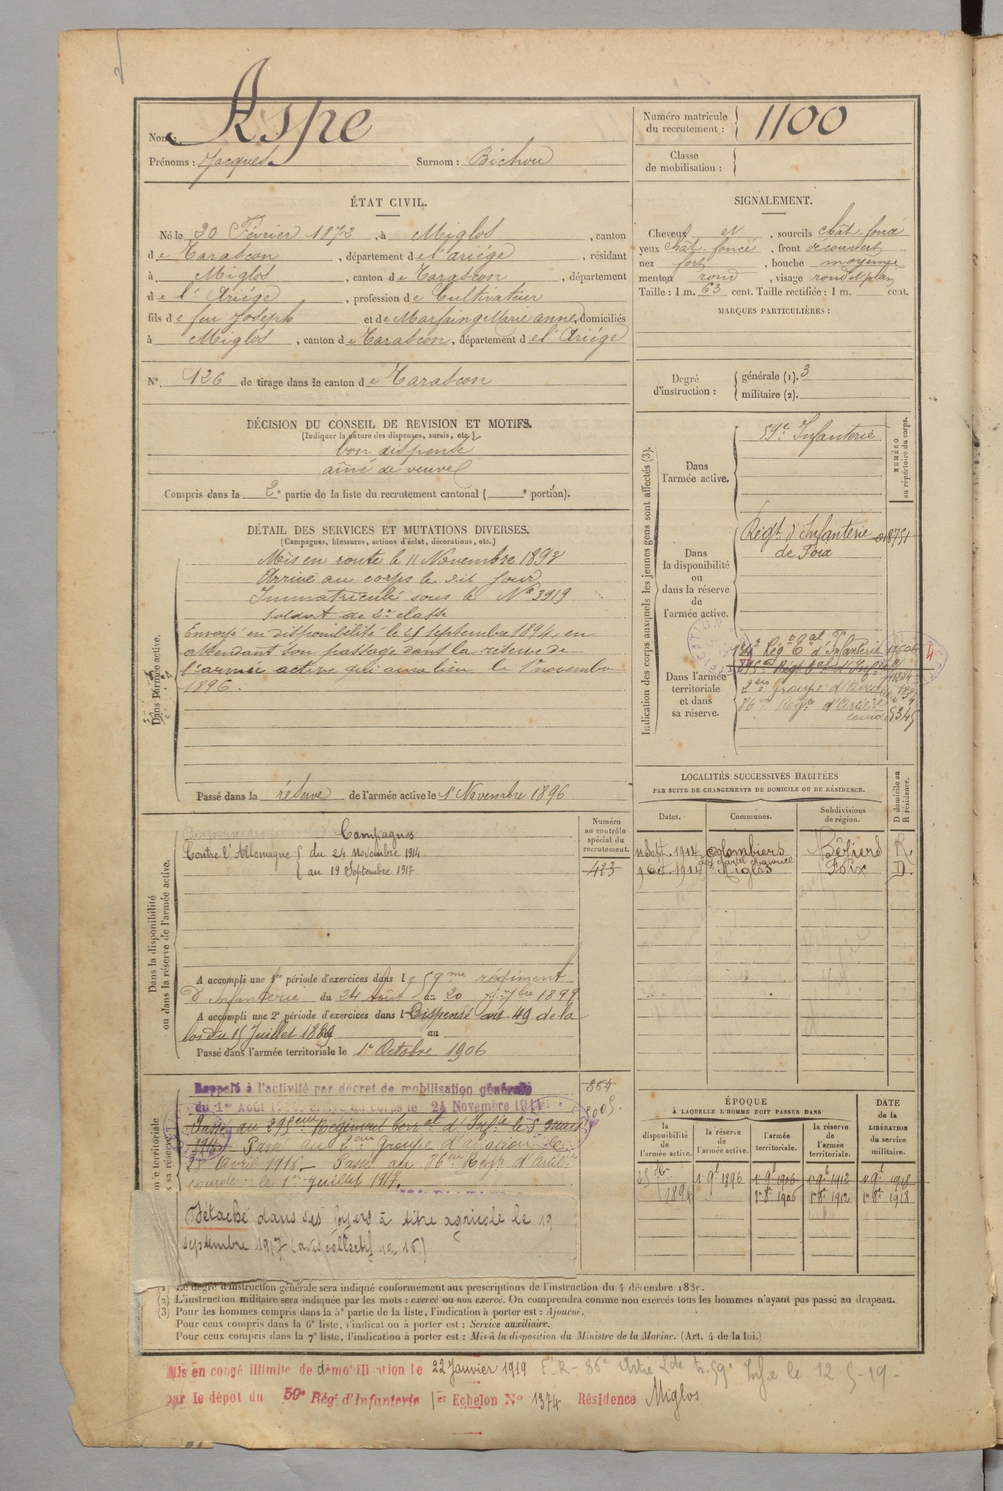 Nom : Aspe
Prénoms : Jacques Surnom : Bichou
Numéro matricule du recrutement : 1100
Classe de mobilisation :
ÉTAT CIVIL.
Né le 20 Février 1872, à Miglos, canton
de Tarascon, département de l'Ariége, résidant
à Miglos, canton de Tarascon, département
de l'Ariége, profession de Cultivateur
fils de feu Joseph et de Marfaing Marie anne, domiciliés
à Miglos, canton de Tarascon, département de l'Ariége
N° 126 de tirage dans le canton de Tarascon
SIGNALEMENT.
Cheveux et, sourcils chat. foncé
yeux chat. foncé, front découvert
nez fort, bouche moyenne
menton rond, visage rond et plan
Taille : 1 m. 63 cent. Taille rectifiée : 1 m. cent.
MARQUES PARTICULIÈRES :
Degré d'instruction : générale (1). 3
militaire (2).
DÉCISION DU CONSEIL DE REVISION ET MOTIFS.
(Indiquer la nature des dispenses, sursis, etc.)
bon dispensé
aîné de veuve
Compris dans la 2e partie de la liste du recrutement cantonal ( e portion).
DÉTAIL DES SERVICES ET MUTATIONS DIVERSES.
(Campagnes, blessures, actions d'éclat, décorations, etc.)
Dans l'armée active.
Mis en route le 11 Novembre 1893
Arrivé au corps le dit jour
Immatriculé sous le No 3919
Soldat de 2e classe
Envoyé en disponibilité le septembre 1894, en
attendant son passage dans la réserve de
l'armée active qui aura lieu le 1er novembre
1896.
Passé dans la réserve de l'armée active le 1er Novembre 1896
Indication des corps auxquels les jeunes gens sont affectés (3).
NUMÉRO au répertoire du corps.
Dans l'armée active.
59e Infanterie
Dans la disponibilité ou dans la réserve de l'armée active.
Régt d'Infanterie
de Foix
Dans l'armée territoriale et dans sa réserve.
Rég. d'Infanterie
Groupe d'aviation
LOCALITÉS SUCCESSIVES HABITÉES
PAR SUITE DE CHANGEMENTS DE DOMICILE OU DE RÉSIDENCE.
Dates. Communes. Subdivisions de région. D domicile ou R résidence.
Sept. 1912 Colombiers Béziers R.
9 Oct 1912 Miglos Foix D.
Dans la disponibilité ou dans la réserve de l'armée active.
Numéro au contrôle spécial du recrutement.
423
Campagnes
Contre l'Allemagne du 24 novembre 1914
au 19 Septembre 1917
A accompli une 1re période d'exercices dans le 59me régiment
d'Infanterie du 24 Août au 20 7bre 1899
A accompli une 2e période d'exercices dans l Dispensé art. 49 de la
loi du 15 Juillet 1889 au
Passé dans l'armée territoriale le 1er Octobre 1906
Rappelé à l'activité par décret de mobilisation générale
du 1er Août corps le 24 Novembre 1914
Passé au Régiment d'Infie le
Passé au 2eme Groupe d'aviation le
Avril 1916 – Passé au 86eme Régt d'Art.
Lourde le 1er Juillet 1917.
Détaché dans ses foyers à titre agricole le 19
septembre 1917 (avis collectif no 16)
ÉPOQUE
A LAQUELLE L'HOMME DOIT PASSER DANS
DATE de la LIBÉRATION du service militaire.
la disponibilité de l'armée active. la réserve de l'armée active. l'armée territoriale. la réserve de l'armée territoriale.
1894 1er 9bre 1896 1er 9bre 1906 1er 9bre 1912 1er 9bre 1918
1er 8bre 1906 1er 8bre 1912 1er 8bre 1918
Le degré d'instruction générale sera indiqué conformément aux prescriptions de l'instruction du 4 décembre
(2) L'instruction militaire sera indiquée par les mots : exercé ou non exercé. On comprendra comme non exercés tous les hommes n'ayant pas passé au drapeau.
(3) Pour les hommes compris dans la 5e partie de la liste, l'indication à porter est : Ajourné.
Pour ceux compris dans la 6e liste, l'indication à porter est : Service auxiliaire.
Pour ceux compris dans la 7e liste, l'indication à porter est : Mis à la disposition du Ministre de la Marine. (Art. 4 de la loi.)
Mis en congé illimité de démobilisation le 22 Janvier 1919
par le dépôt du 59e Régt d'Infanterie 1er Echelon No 1374 Résidence Miglos